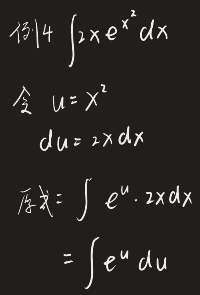 例4 ∫2xe^{x^2}dx
令 u=x^2
du=2xdx
原式=∫ e^u·2xdx
=∫e^u du